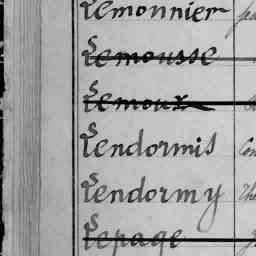 Lemonnier
Lemousse
Lemoux
Lendormis
Lendormy
Lepage